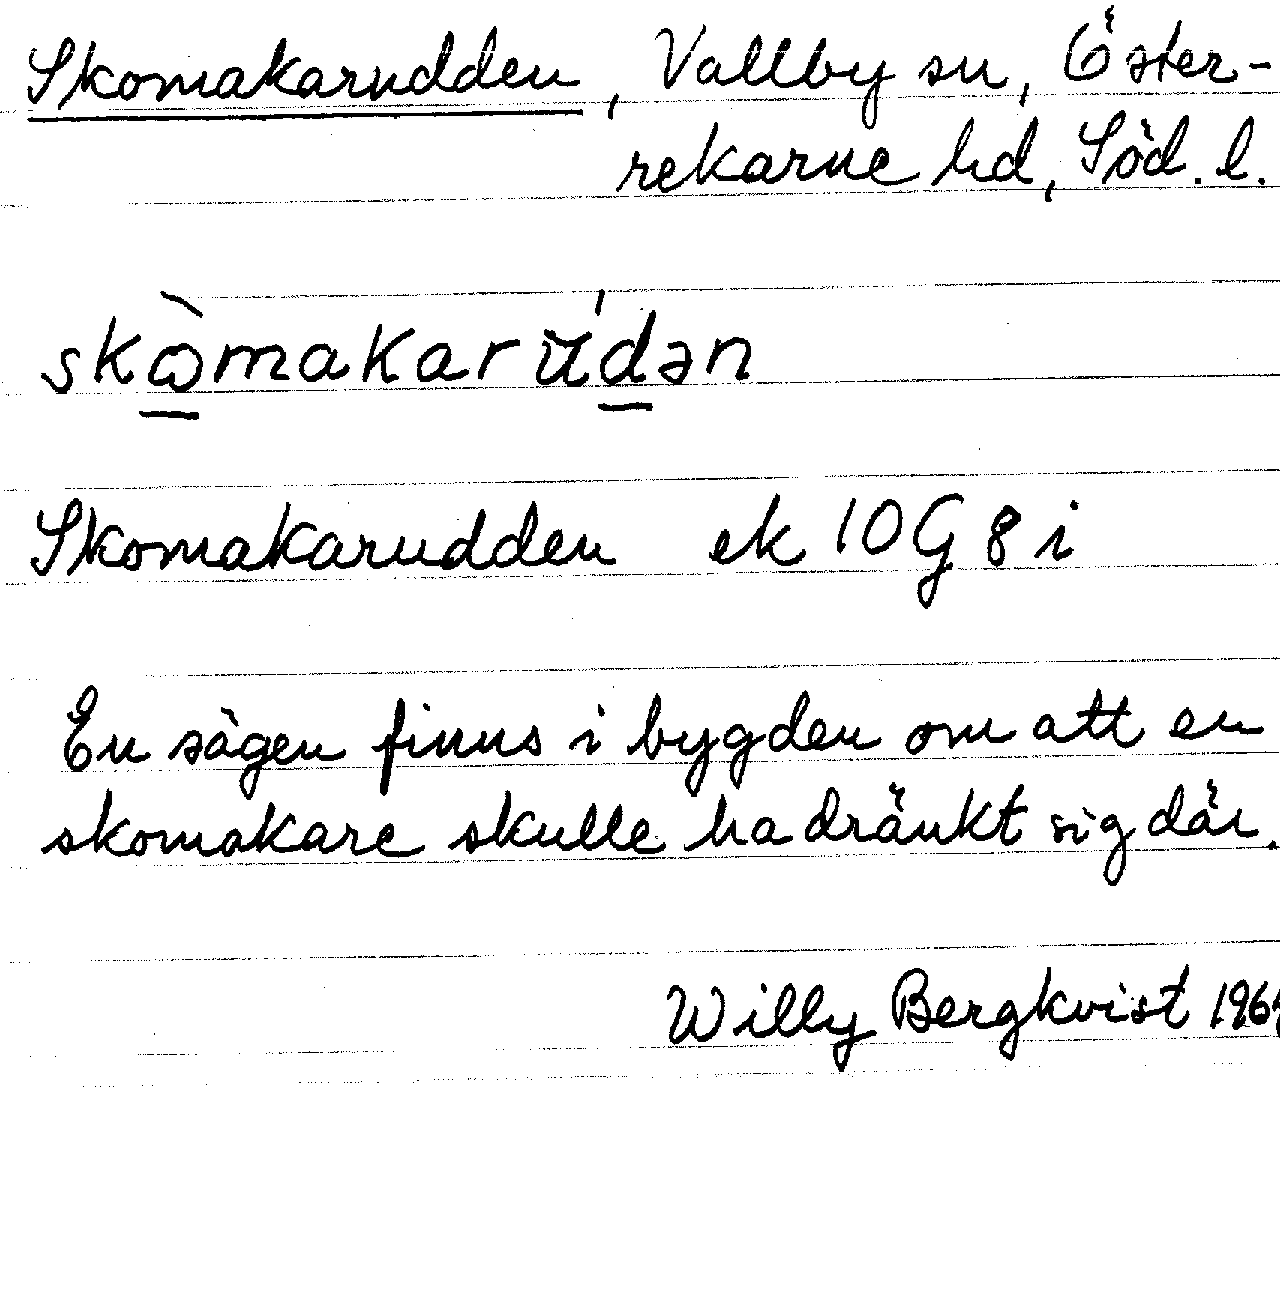 Skomakarudden, Vallby sn, Öster-
rekarne hd, Söd. l.
skὼmakarŭ́dən
Skomakarudden ek 10 G 8 i
En sägen finns i bygden om att en
skomakare skulle ha dränkt sig där.
Willy Bergkvist